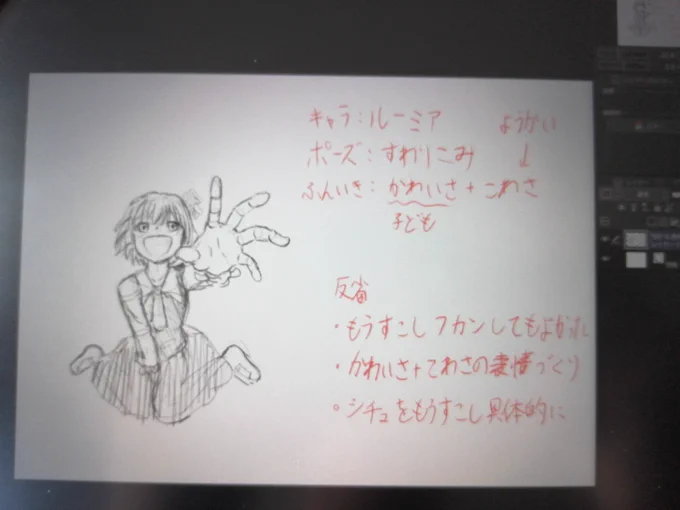 キャラ：ルーミア ようかい
ポーズ：すわりこみ ↓
ふんいき：かわいさ＋こわさ
子ども
反省
・もうすこしフカンしてもよかった
・かわいさ＋こわさの表情づくり
・シチュをもうすこし具体的に